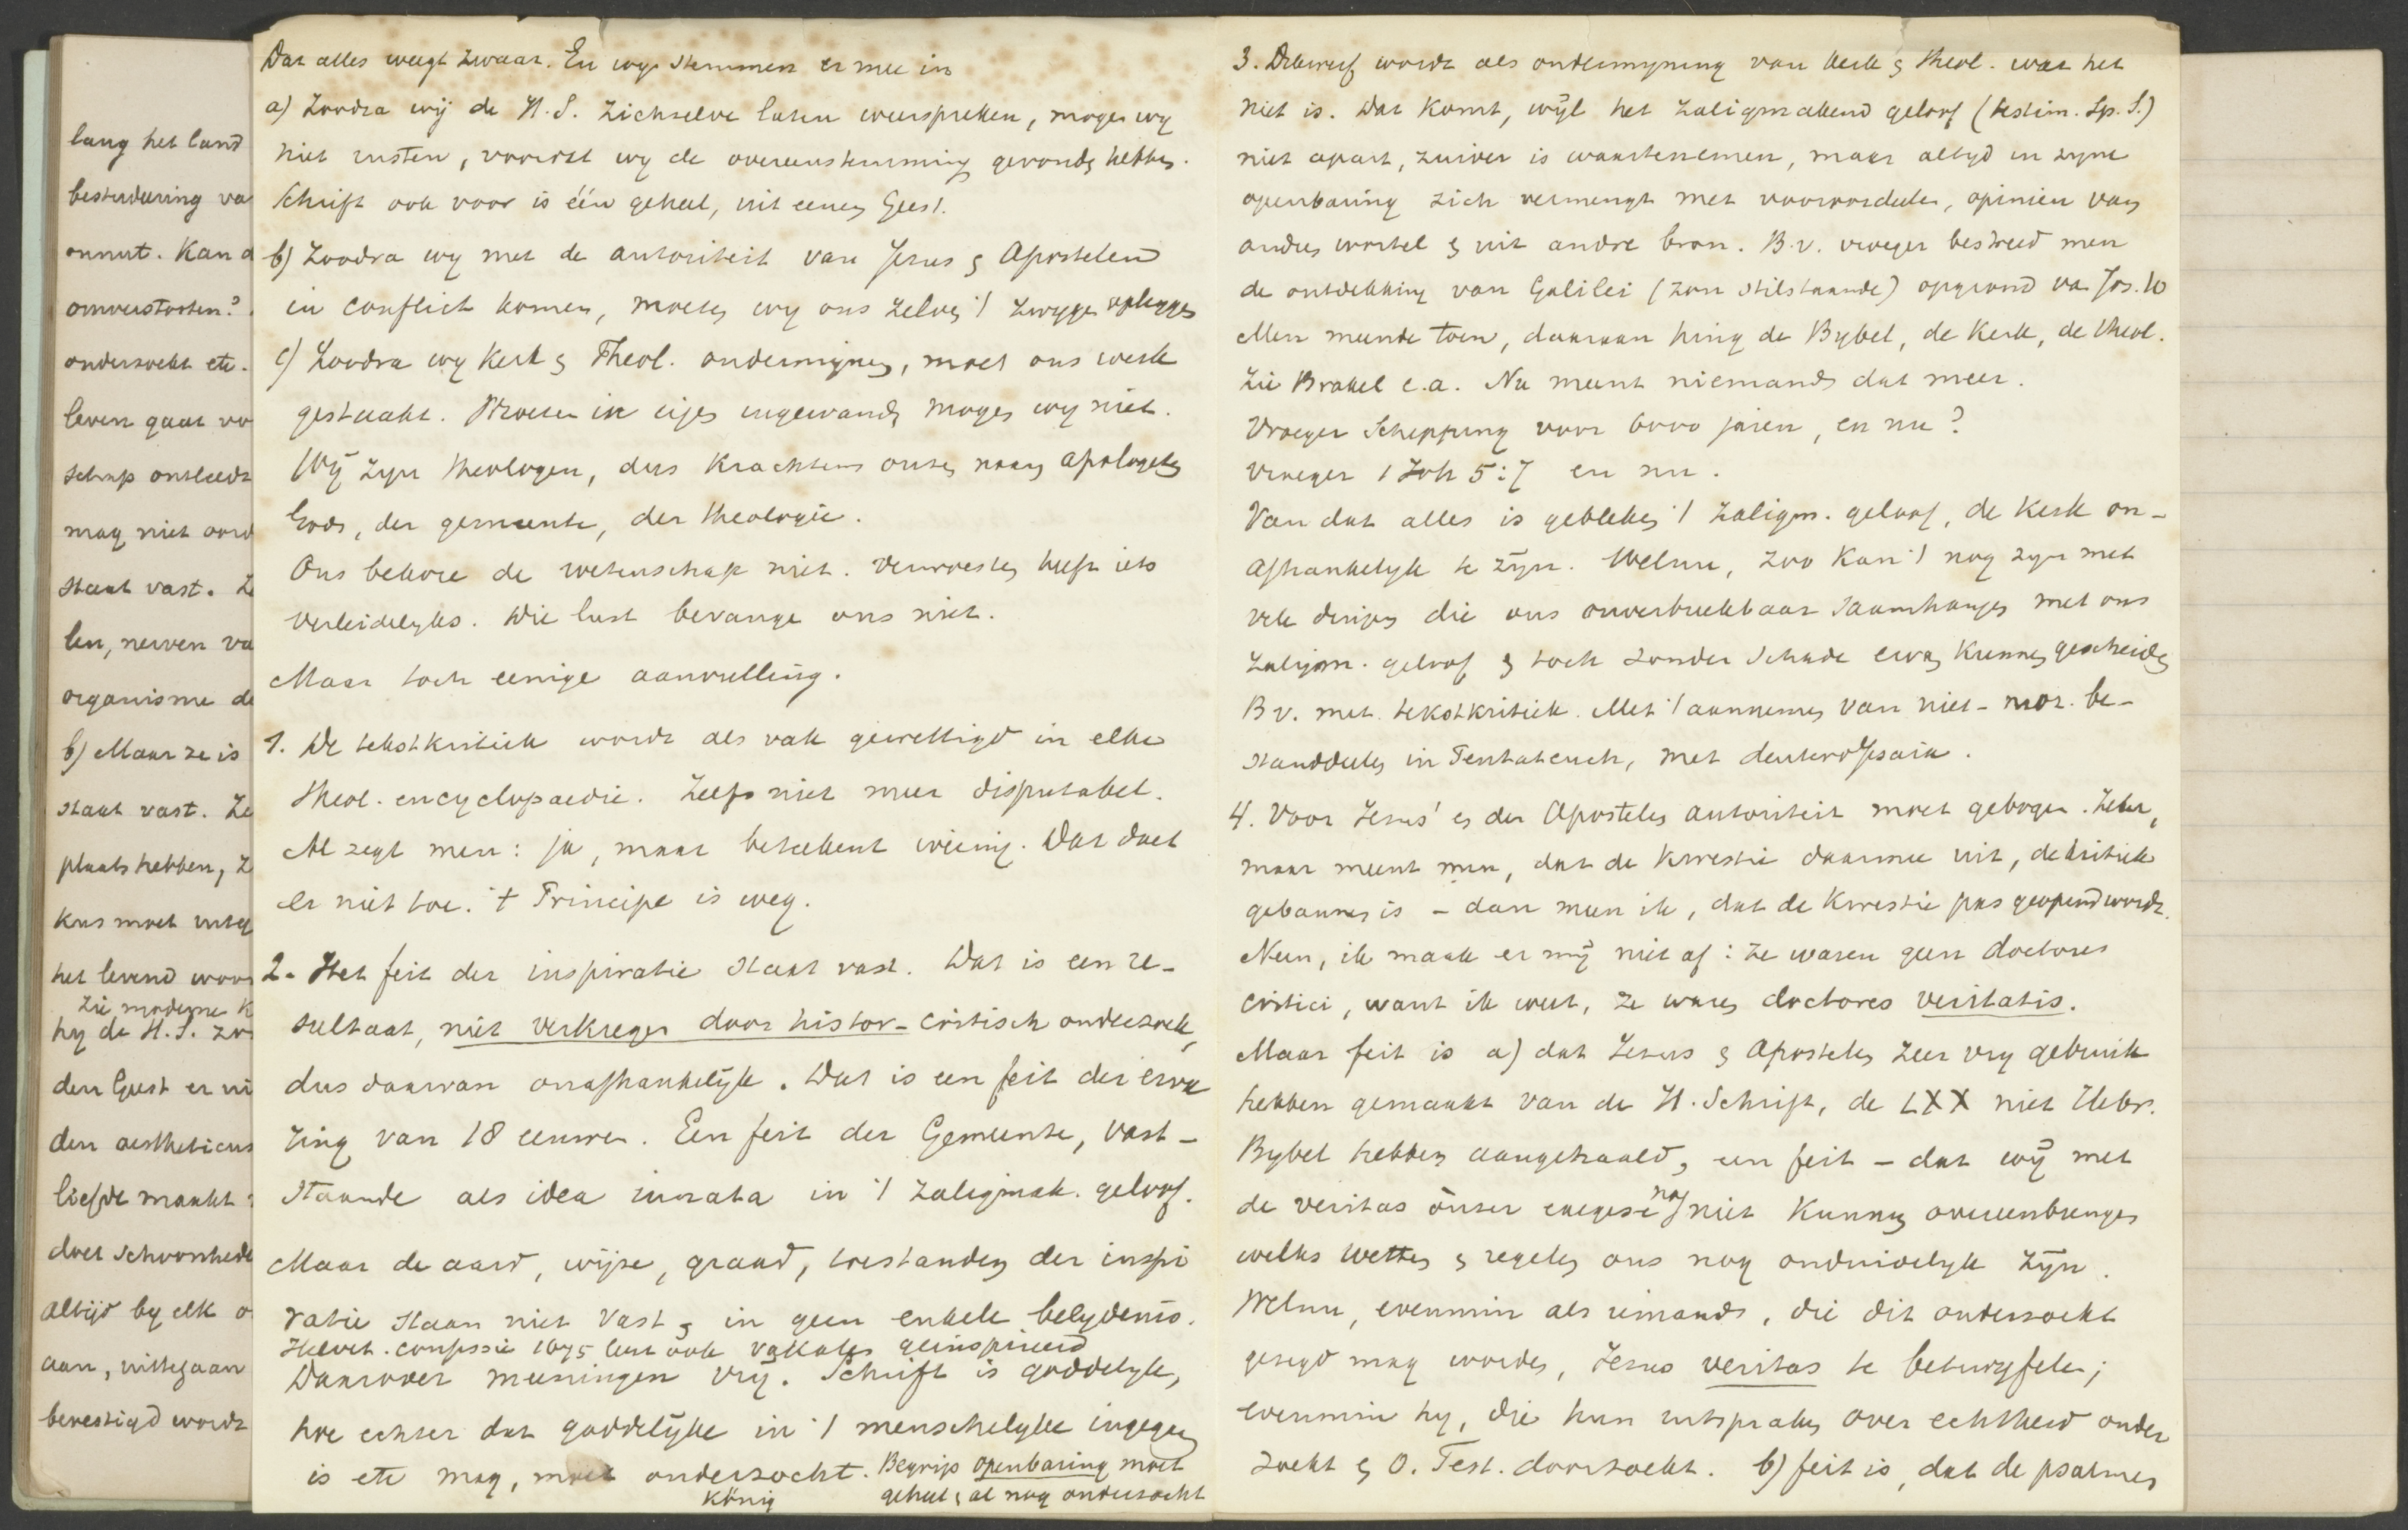 lang het land
bestudeering va
onnut. Kan d
omverstooten?
onderzoekt etc.
leven gaat vo
schap ontleedt
mag niet oord
staat vast. Z
len, nerven va
organisme de
b) Maar ze is
staat vast. Ze
plaats hebben, z
kus moet uitg
het levend woor
Zie moderne k
hy de H.S. zo
den Geest er ui
den aestheticus
liefde maakt
doet schoonhede
altijd by elk o
aan, uittegaan
bevestigd wordt
Dat alles weegt zwaar. En wy stemmen er mee in
a) Zoodra wij de H.S. zichzelve laten weerspreken, mogen wy
niet rusten, voordat wy de overeenstemming gevonden hebben.
Schrift ook voor is één geheel, uit eenen Geest.
b) Zoodra wy met de autoriteit van Jezus en Apostelen
in conflict komen, moeten wy ons zelven 't zwygen opleggen
c) Zoodra wy Kerk en Theol. ondermijnen, moet ons werk
gestaakt. Wroeten in eigen ingewanden mogen wy niet.
Wij zyn theologen, dus krachtens onzen naam apologeten
Gods, der gemeente, der theologie.
Ons bekore de wetenschap niet. Verwoesten heeft iets
verleidelyks. Die lust bevange ons niet.
Maar toch eenige aanvulling.
1. De tekstkritiek wordt als vak gewettigd in elke
theol. encyclopaedie. Zelfs niet meer disputabel.
Al zegt men: ja, maar beteekent weinig. Dat doet
er niet toe. 't Principe is weg.
2. Het feit der inspiratie staat vast. Dat is een re-
sultaat, niet verkregen door histor-critisch onderzoek,
dus daarvan onafhankelijk. Dat is een feit der erva
ring van 18 eeuwen. Een feit der Gemeente, vast-
staande als idea innata in 't zaligmak. geloof.
Maar de aard, wijze, graad, toestanden der inspi
ratie staan niet vast en in geen enkele belydenis.
Helvet. confessie 1675 leert ook vokalen geinspireerd
Daarover meeningen vrij. Schrift is goddelyk,
hoe echter dat goddelijke in 't menschelyke ingegaan
is etc mag, moet onderzocht. Begrip openbaring moet
geheel en al nog onderzocht
König
3. Dikwerf wordt als ondermyning van kerk en theol. wat het
niet is. Dat komt, wijl het zaligmakend geloof (testim. Sp. S.)
niet apart, zuiver is waartenemen, maar altyd in zyne
openbaring zich vermengt met vooroordeelen, opinien van
andren wortel en uit andre bron. B.v. vroeger bestreed men
de ontdekking van Galilei (zon stilstaande) opgrond va Jos. 10
Men meende toen, daaraan hing de Bybel, de Kerk, de theol.
Zie Brakel e.a. Nu meent niemand dat meer.
Vroeger Schepping voor 6000 jaren, en nu?
Vroeger 1 Joh 5:7 en nu.
Van dat alles is gebleken 't zaligm. geloof, de Kerk on-
afhankelyk te zijn. Welnu, zoo kan 't nog zyn met
vele dingen die ons onverbreekbaar saamhangen met ons
zaligm. geloof en toch zonder schade ervan kunnen gescheiden
B v. met tekstkritiek. Met 't aannemen van niet-moz. be-
standdeelen in Pentateuch, met deuteroJesaia.
4. Voor Jezus' en der Apostelen autoriteit moet gebogen. Zeker,
maar meent men, dat de kwestie daarmee uit, de kritiek
gebannen is – dan meen ik, dat de kwestie pas geopend wordt.
Neen, ik maak er mij niet af: ze waren geen doctores
critici, want ik weet, ze waren doctores veritatis.
Maar feit is a) dat Jezus en Apostelen zeer vry gebruik
hebben gemaakt van de H. Schrift, de LXX niet Hebr.
Bybel hebben aangehaald, een feit – dat wij met
de veritas onzer exegese nog niet kunnen overeenbrengen
welks wetten en regelen ons nog onduidelyk zijn.
Welnu, evenmin als iemand, die dit onderzoekt
gezegd mag worden, Jezus veritas te betwyfelen;
evenmin hy, die hun uitspraken over echtheid onder
zoekt en O. Test. doorzoekt. b) feit is, dat de psalmen